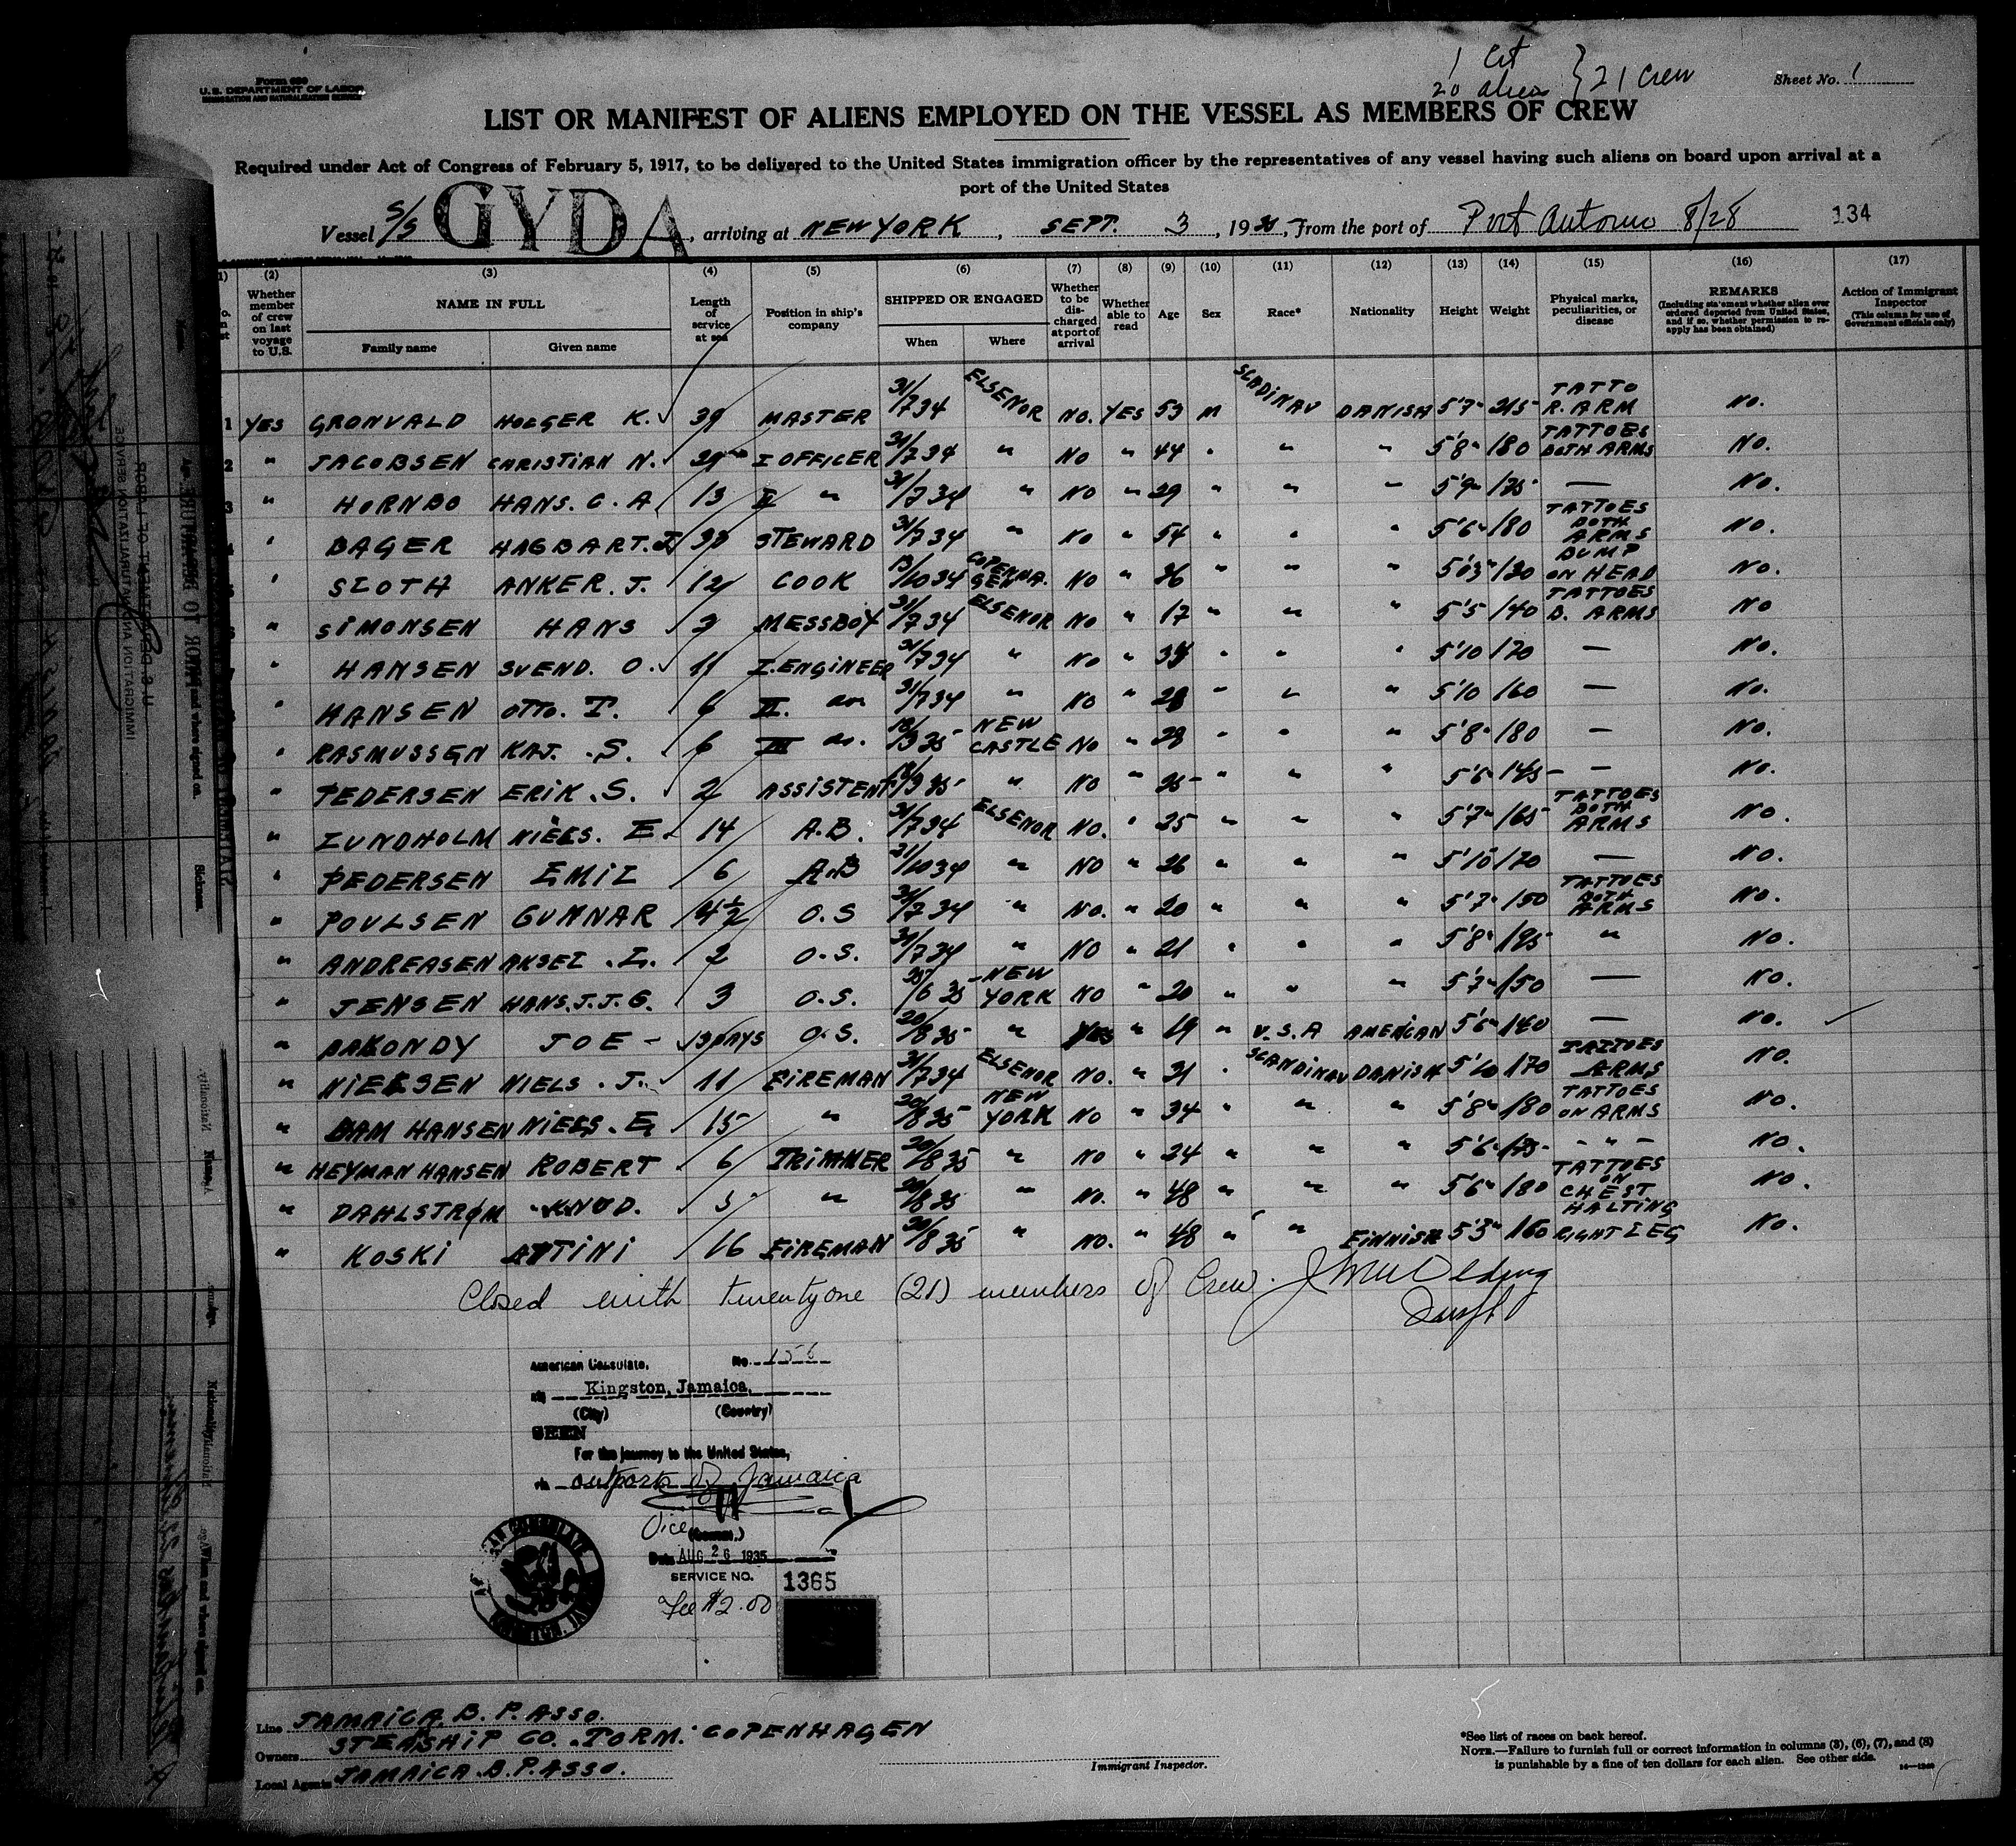 Form 680
U.S. DEPARTMENT OF LABOR
IMMIGRATION AND NATURALIZATION SERVICE
1 Cit
20 aliens } 21 Crew
Sheet No. 1
LIST OR MANIFEST OF ALIENS EMPLOYED ON THE VESSEL AS MEMBERS OF CREW
Required under Act of Congress of February 5, 1917, to be delivered to the United States immigration officer by the representatives of any vessel having such aliens on board upon arrival at a
port of the United States
Vessel S/S GYDA, arriving at NEW YORK, SEPT. 3, 1935, From the port of Port Antonio 8/28 134
(2) (3) (4) (5) (6) (7) (8) (9) (10) (11) (12) (13) (14) (15) (16) (17)
Whether member of crew on last voyage to U.S. NAME IN FULL Family name Given name Length of service at sea Position in ship's company SHIPPED OR ENGAGED When Where Whether to be discharged at port of arrival Whether able to read Age Sex Race* Nationality Height Weight Physical marks, peculiarities, or disease REMARKS (Including statement whether alien ever ordered deported from United States, and if so, whether permission to reapply has been obtained) Action of Immigrant Inspector (This column for use of Government officials only)
1 YES GRONVALD HOLGER K. 39 MASTER 31/7 34 ELSENOR NO. YES 53 M SCADINAV DANISH 5'7" 215 TATTO R. ARM No.
2 " JACOBSEN CHRISTIAN N. I OFFICER 31/7 34 " NO " 44 " " " 5'8" 180 TATTOES BOTH ARMS No.
3 " HORNBO HANS. C. A 13 II " 31/7 34 " NO " 29 " " " 5'9" 175 — No.
" BAGER HAGBART. J. STEWARD 31/7 34 " No " 54 " " " 5'6" 180 TATTOES BOTH ARMS No.
" SLOTH ANKER. J. 12 COOK 13/10 34 COPENHAGEN NO " 36 " " " 130 BUMP ON HEAD No.
" SIMONSEN HANS 2 MESSBOY 31/7 34 ELSENOR NO " 17 " " " 5'5 140 TATTOES B. ARMS No
" HANSEN SVEND. O. 11 I. ENGINEER 31/7 34 " No " " " " 5'10 170 — No.
" HANSEN OTTO. T. 6 II. do 31/7 34 " NO " 28 " " " 5'10 160 — No.
" RASMUSSEN KAJ. S. 6 III do. NEW CASTLE NO " 28 " " " 5'8" 180 — No.
" PEDERSEN ERIK. S. 2 ASSISTENT " NO " 25 " " " 5'6" 145 — No.
" LUNDHOLM NIELS. E. 14 A.B. 31/7 34 ELSENOR NO. " 25 " " " 5'7" 165 TATTOES BOTH ARMS No.
" PEDERSEN EMIL 6 A.B 21/10 34 " NO " 26 " " " 5'10 170 — No.
" POULSEN GUNNAR 4½ O.S 31/7 34 " NO. " 20 " " " 5'7" 150 TATTOES BOTH ARMS No.
" ANDREASEN AKSEL. L. 2 O.S. 31/7 34 " NO " 21 " " " 5'8" 195 " No.
" JENSEN HANS. J. J. G. 3 O.S. NEW YORK NO " 20 " " " 5'7" 150 — No.
" BAKONDY JOE - 13 DAYS O.S. 20/8 35 " YES " 19 " U.S.A AMERICAN 5'6" 140 — No.
" NIELSEN NIELS. J. 11 FIREMAN 31/7 34 ELSENOR NO. " 31 " SCANDINAV DANISH 5'10 170 TATTOES ARMS No.
" BAM HANSEN NIELS. E. 15 " 20/8 35 NEW YORK NO " 34 " " " 5'8" 180 TATTOES ON ARMS No.
" HEYMAN HANSEN ROBERT 6 TRIMMER 20/8 35 " NO " 24 " " " 5'6" 175 - " - No.
" DAHLSTRØM KNUD. 5 " 20/8 35 " NO. " 48 " " " 5'6" 180 TATTOES ON CHEST No.
" KOSKI ATTINI 16 FIREMAN 20/8 35 " NO. " 48 " " FINNISH 5'3" 160 HALTING RIGHT LEG No.
Closed with twentyone (21) members of Crew.
American Consulate, No. 156
at Kingston, Jamaica,
(City) (Country)
SEEN
For the journey to the United States,
via outports of Jamaica
Vice (Consul.)
Date AUG 26 1935
SERVICE NO. 1365
Fee $2.00
Line JAMAICA. B. P. ASSO.
Owners STEASHIP CO. TORM. COPENHAGEN
Local Agents JAMAICA. B. P. ASSO.
Immigrant Inspector.
*See list of races on back hereof.
NOTE.—Failure to furnish full or correct information in columns (3), (6), (7), and (8)
is punishable by a fine of ten dollars for each alien. See other side.